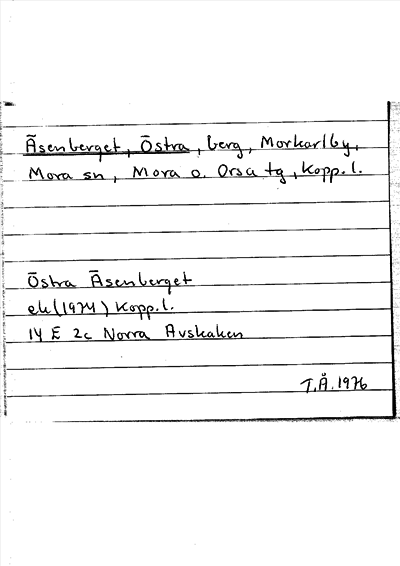 Åsenberget, Östra, berg, Morkarlby,
Mora sn, Mora o. Orsa tg, Kopp. l.
Östra Åsenberget
ek (1974) Kopp. l.
14 E 2c Norra Avskaken
T.Å. 1976